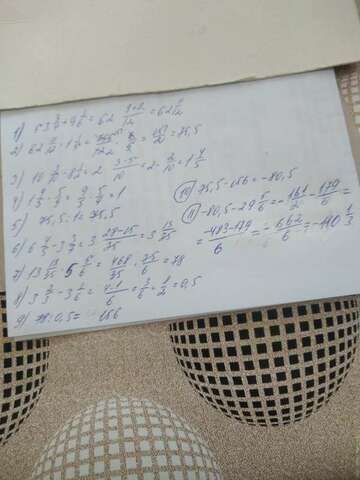 1) 53 3/4 + 9 1/6 = 62 (9+2)/12 = 62 11/12
2) 62 11/12 : 1 2/3 =
3) 10 3/10 - 8 1/2 = 2 (3-5)/10 = 1 4/5
4) 1 4/5 · 5/9 = 9/5 · 5/9 = 1
5) 75,5 · 1 = 75,5
6) 6 4/5 - 3 3/7 = 3 (28-15)/35 = 3 13/35
7) 13 13/35 · 5 5/6 = 468/35 · 35/6 = 78
8) 3 2/3 - 3 1/6 = (4-1)/6 = 3/6 = 1/2 = 0,5
9) 78 : 0,5 = 156
10) 75,5 - 156 = -80,5
11) -80,5 - 29 5/6 = -161/2 - 179/6 =
= (-483-179)/6 = -662/6 = -110 1/3